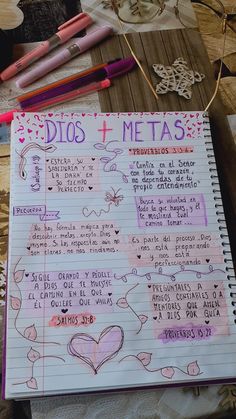 DIOS + METAS
PROVERBIOS 3:5-6
ESPERA SU
SABIDURÍA Y LA DARÁ
Santiago 1:5
EN SU TIEMPO
PERFECTO
"Confía en el Señor
con todo tu corazón,
no dependas de tu
propio entendimiento"
Busca su voluntad en
todo lo que hagas, y él
te mostrará cual
camino tomar
RECUERDA:
No hay formula mágica para
descubrir metas, excepto Dios
mismo. Si las respuestas aun no
son claras.
Es parte del proceso, Dios
nos está preparando
y nos está
perfeccionando
SIGUE ORANDO Y PIDELE
A DIOS QUE TE MUESTRE
EL CAMINO EN EL QUE
EL QUIERE QUE VAYAS
SALMOS 32:8
PREGUNTALES A
AMIGOS CONFIABLES O A
MENTORES QUE AMEN
A DIOS POR GUÍA
PROVERBIOS 15:22